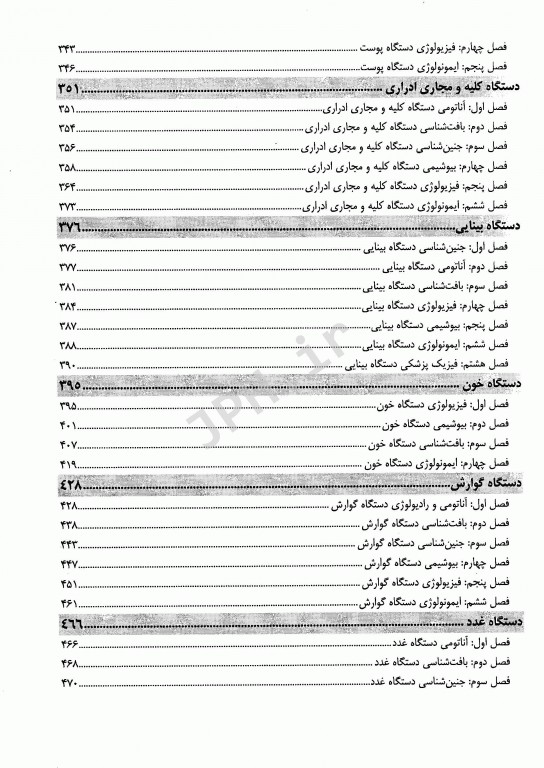 فصل چهارم: فیزیولوژی دستگاه پوست ۳۴۳
فصل پنجم: ایمونولوژی دستگاه پوست ۳۴۶
دستگاه کلیه و مجاری ادراری ۳۵۱
فصل اول: آناتومی دستگاه کلیه و مجاری ادراری ۳۵۱
فصل دوم: بافت‌شناسی دستگاه کلیه و مجاری ادراری ۳۵۴
فصل سوم: جنین‌شناسی دستگاه کلیه و مجاری ادراری ۳۵۶
فصل چهارم: بیوشیمی دستگاه کلیه و مجاری ادراری ۳۵۸
فصل پنجم: فیزیولوژی دستگاه کلیه و مجاری ادراری ۳۶۴
فصل ششم: ایمونولوژی دستگاه کلیه و مجاری ادراری ۳۷۳
دستگاه بینایی ۳۷۶
فصل اول: جنین‌شناسی دستگاه بینایی ۳۷۶
فصل دوم: آناتومی دستگاه بینایی ۳۷۷
فصل سوم: بافت‌شناسی دستگاه بینایی ۳۸۱
فصل چهارم: فیزیولوژی دستگاه بینایی ۳۸۴
فصل پنجم: بیوشیمی دستگاه بینایی ۳۸۷
فصل ششم: ایمونولوژی دستگاه بینایی ۳۸۸
فصل هشتم: فیزیک پزشکی دستگاه بینایی ۳۹۰
دستگاه خون ۳۹۵
فصل اول: فیزیولوژی دستگاه خون ۳۹۵
فصل دوم: بیوشیمی دستگاه خون ۴۰۱
فصل سوم: بافت‌شناسی دستگاه خون ۴۰۷
فصل چهارم: ایمونولوژی دستگاه خون ۴۱۹
دستگاه گوارش ۴۲۸
فصل اول: آناتومی و رادیولوژی دستگاه گوارش ۴۲۸
فصل دوم: بافت‌شناسی دستگاه گوارش ۴۳۸
فصل سوم: جنین‌شناسی دستگاه گوارش ۴۴۳
فصل چهارم: بیوشیمی دستگاه گوارش ۴۴۷
فصل پنجم: فیزیولوژی دستگاه گوارش ۴۵۱
فصل ششم: ایمونولوژی دستگاه گوارش ۴۶۱
دستگاه غدد ۴۶۶
فصل اول: آناتومی دستگاه غدد ۴۶۶
فصل دوم: بافت‌شناسی دستگاه غدد ۴۶۸
فصل سوم: جنین‌شناسی دستگاه غدد ۴۷۰